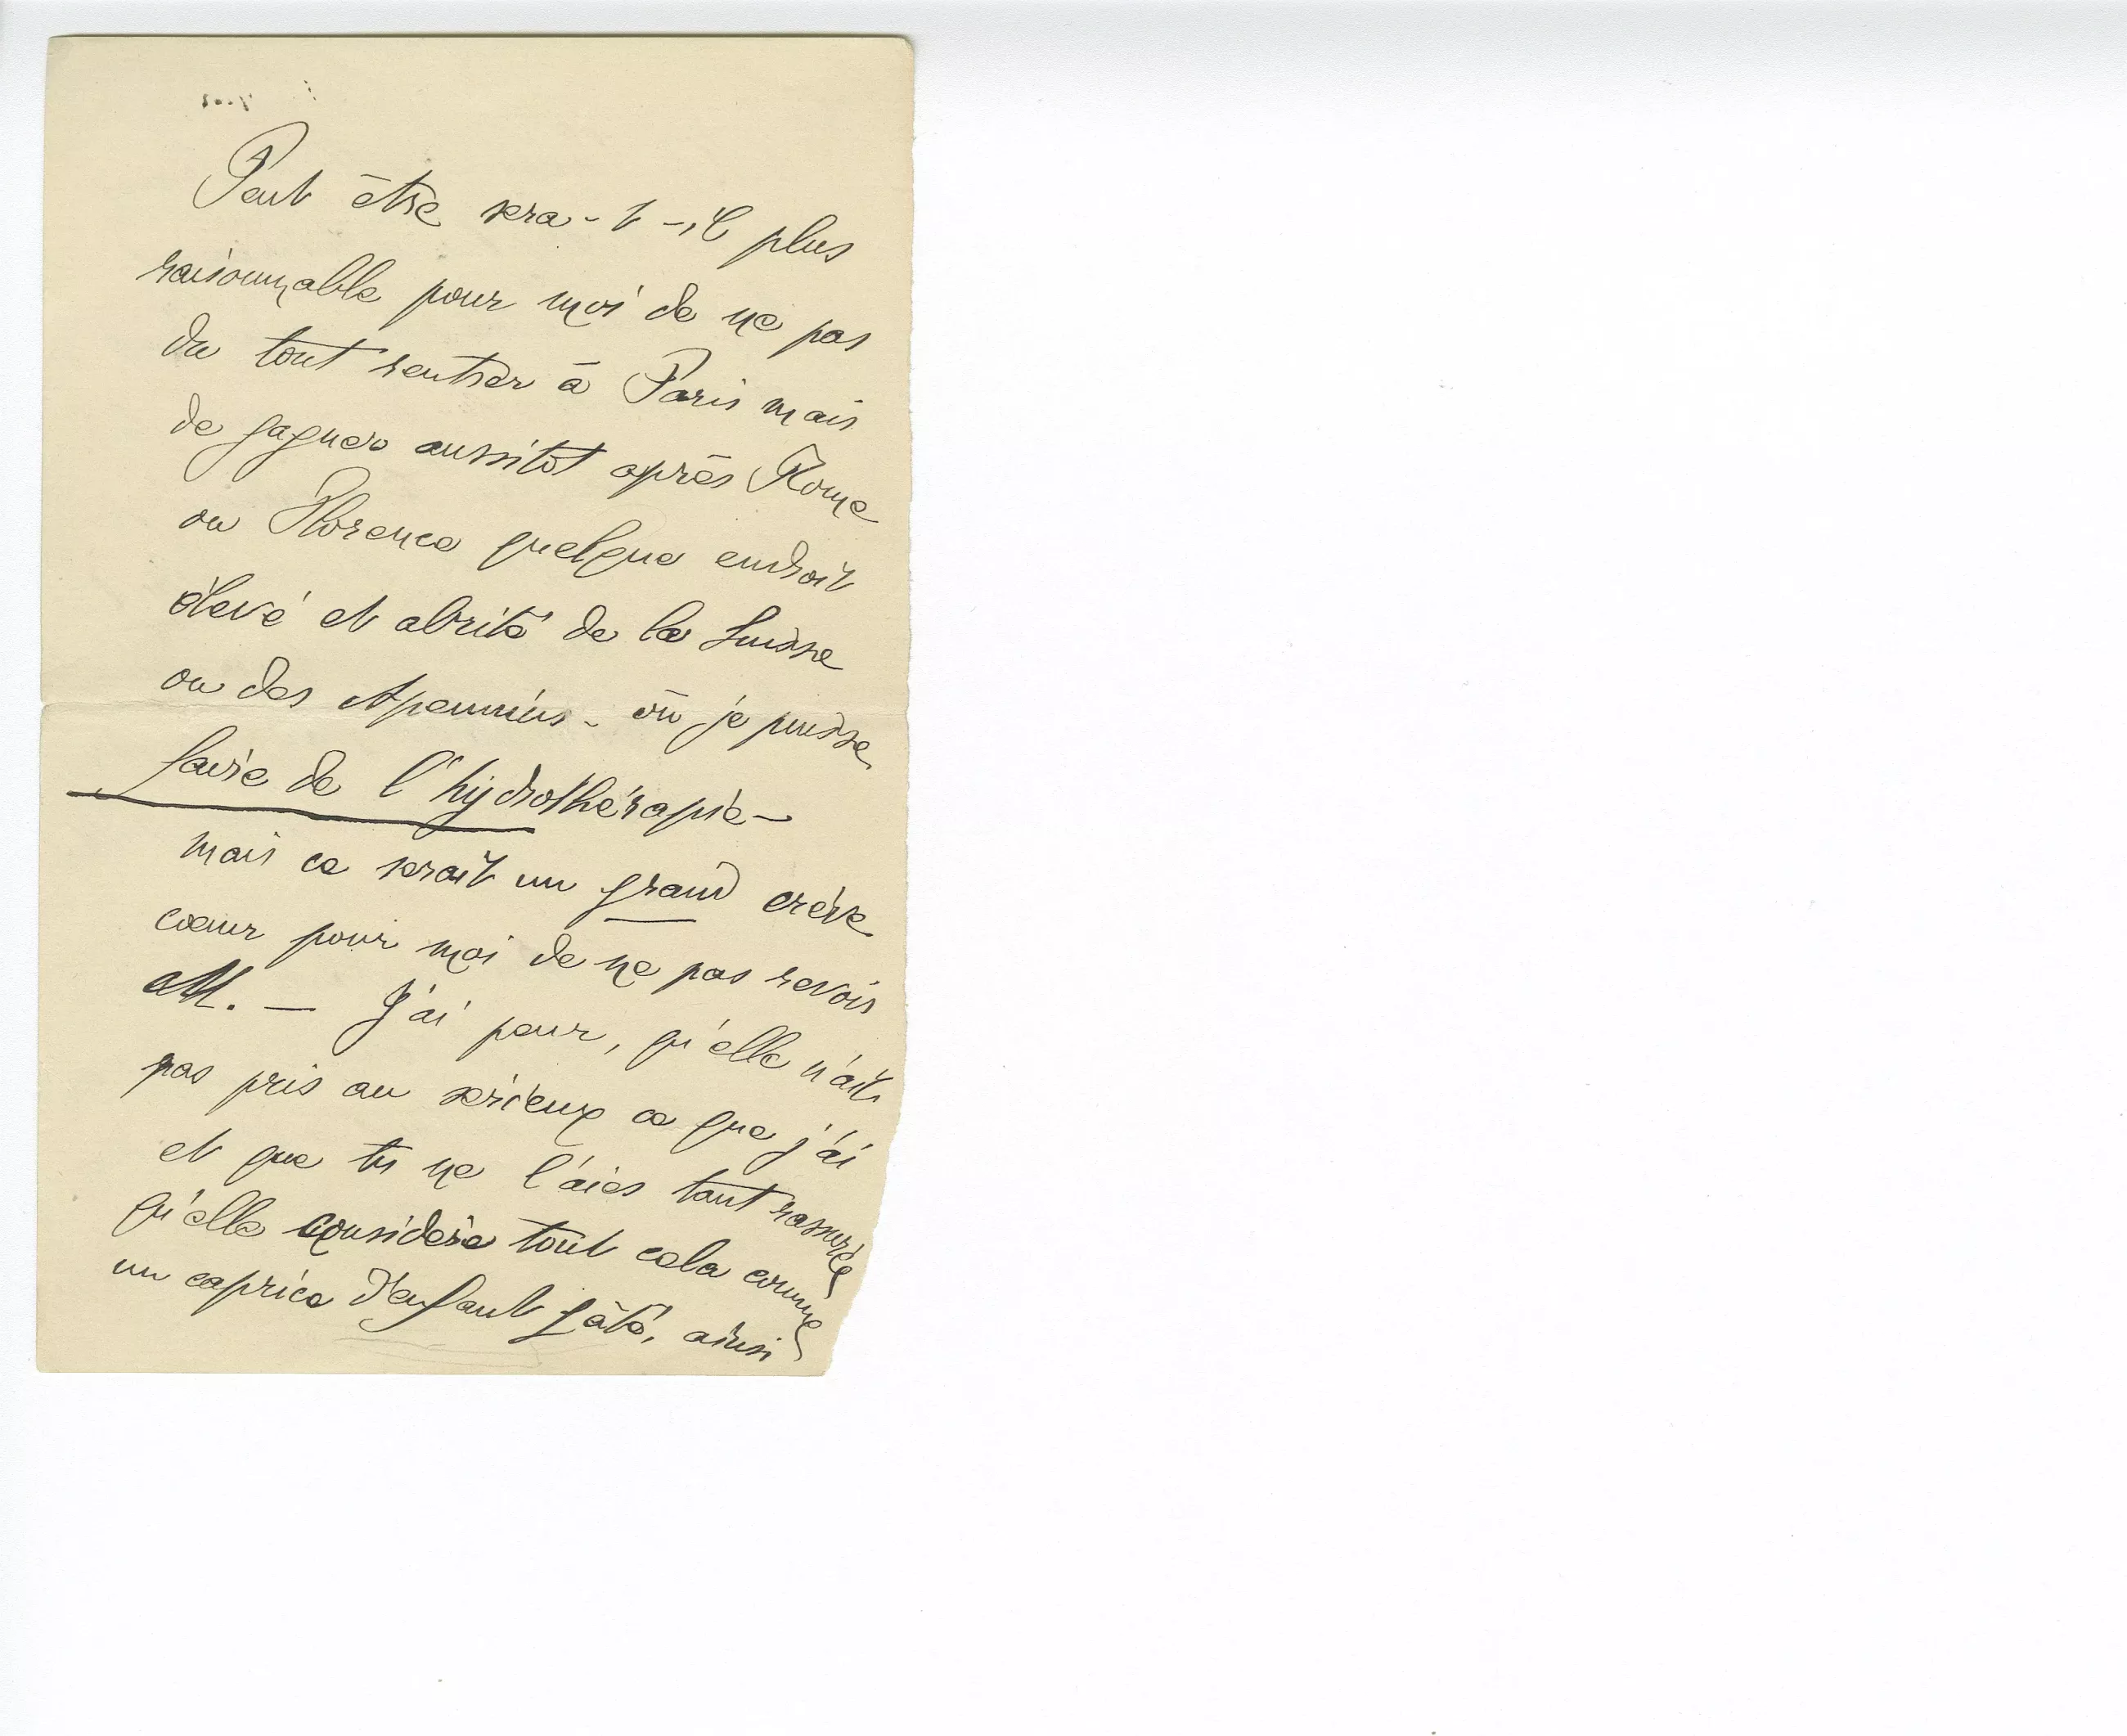 Peut être sera-t-il plus
raisonnable pour moi de ne pas
du tout rentrer à Paris mais
de gagner aussitôt après Rome
ou Florence quelque endroit
élevé et abrité de la Suisse
ou des Apennins - où je puisse
faire de l'hydrothérapie -
mais ce serait un grand crève
cœur pour moi de ne pas revoir
M. — J'ai peur, qu'elle n'ait
pas pris au sérieux ce que j'ai
et que tu ne l'aies tant rassurée
qu'elle considère tout cela comme
un caprice d'enfant gâté, ainsi